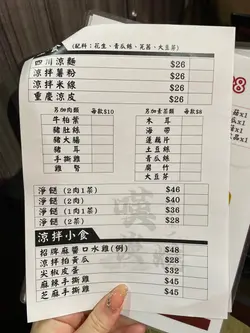 (配料：花生、青瓜絲、芫荽、大豆芽)
四川涼麵 $26
涼拌薯粉 $26
涼拌米線 $26
重慶涼皮 $26
另加肉類 每款$10 另加素菜類 每款$8
牛柏葉 木耳
豬肚絲 海帶
豬大腸 蓮藕片
豬耳 土豆絲
手撕雞 青瓜絲
雞腎 腐竹
大豆芽
淨餸 (2肉1菜) $46
淨餸 (2肉) $40
淨餸 (1肉1菜) $36
淨餸 (2菜) $28
涼拌小食
招牌麻醬口水雞(例) $48
涼拌拍黃瓜 $28
尖椒皮蛋 $32
麻辣手撕雞 $45
芝麻手撕雞 $45